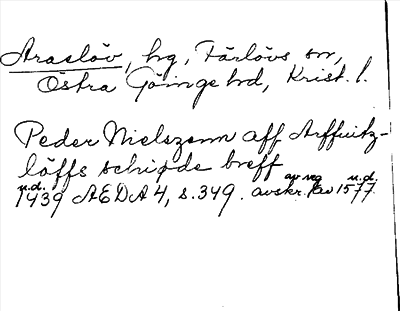 Araslöv, hg, Färlövs sn,
Östra Göinge hd, Krist. l.
Peder Nielszønn aff Arffuitz-
löffs schipde breff
u.d. av reg u.d.
1439 AEDA 4, s. 349. avskr. av 1577